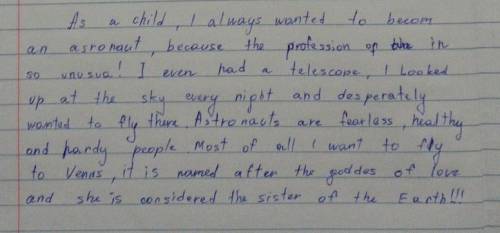 As a child, I always wanted to becom
an asronaut, because the profession of in
so unusual! I even had a telescope, I Looked
up at the sky every night and desperately
wanted to fly there. Astronauts are fearless, healthy
and hardy people Most of all I want to fly
to Venus, it is named after the goddes of love
and she is considered the sister of the Earth!!!